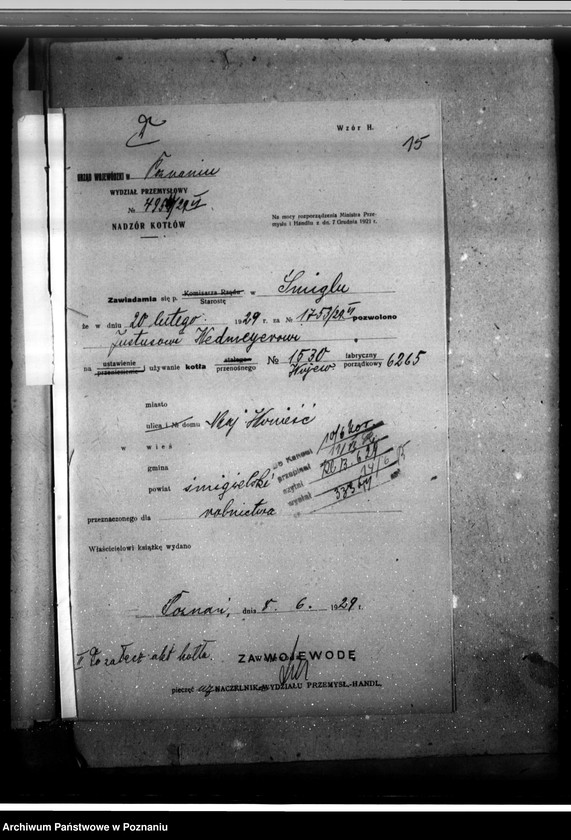 Wzór H.
15
URZĄD WOJEWÓDZKI w Poznaniu
WYDZIAŁ PRZEMYSŁOWY
№
NADZÓR KOTŁÓW
Na mocy rozporządzenia Ministra Prze-
mysłu i Handlu z dn. 7 Grudnia 1921 r.
Zawiadamia się p. Komisarza Rządu w Śmiglu
Starostę
że w dniu 20 lutego 1929 r. za № 1753/29 VI pozwolono
Justusowi Hedmeyerowi
na ustawienie i używanie kotła stałego № 1530 fabryczny 6265
przeniesienie przenośnego porządkowy
miasto
ulica i № domu Maj
w wieś
gmina
powiat śmigielski
przeznaczonego dla rolnictwa
Do Kancel
przepisał
czytał
wysłał
Właścicielowi książkę wydano
Poznań, dnia 8. 6. 1929 r.
ZA WOJEWODĘ
II Do załącz. akt kotła
pieczęć NACZELNIK WYDZIAŁU PRZEMYSŁ.-HANDL.
Archiwum Państwowe w Poznaniu